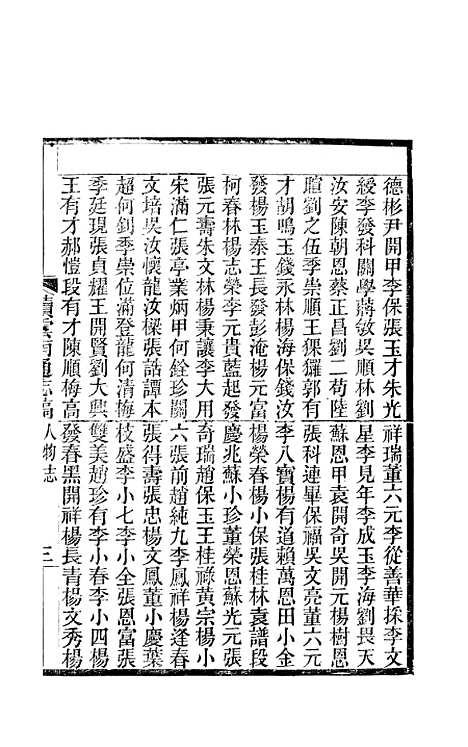 德彬尹開甲李保張玉才朱光祥瑞董六元李從善華採李文
綬李發科關學蔣敏吳順林劉星李見年李成玉李海劉畏天
汝安陳朝恩蔡正昌劉二苟陸蘇恩甲袁開奇吳開元楊樹恩
暄劉之伍季崇順王猓玀郭有張科連畢保福吳文亮董六元
才胡鳴玉錢永林楊海保錢汝李八寶楊有道賴萬恩田小金
發楊玉泰王長發彭淹楊元富楊榮春楊小保張桂林袁譜段
柯春林楊志榮李元貴藍起發慶兆蘇小珍董榮恩蘇光元張
張元壽朱文林楊秉讓李大用奇瑞趙保玉王桂祿黃宗楊小
宋滿仁張亭業炳甲何銓珍關六張前趙純九李鳳祥楊逢春
文培吳汝懷龍汝樑張誥譚本張得壽張忠楊文鳳董小慶葉
超何釗季崇位滿登龍何清梅枝盛李小七李小全張恩富張
季廷現張貞耀王開賢劉大興雙美趙珍有李小春李小四楊
王有才郝愷段有才陳順梅高發春黑開祥楊長青楊文秀楊
續雲南通志高 人物志 三